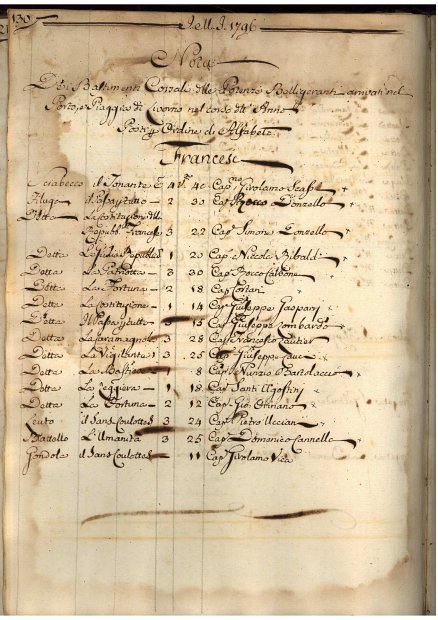 130
J. M. J. 1796
Nota
Dei Bastimenti Corsali delle Potenze Belligeranti arrivati nel
Porto, e Piaggia di Livorno nel corso dell' Anno
Posti per Ordine di Alfabeto
Francesi
Sciabecco il Tonante C 4 40 Cap.ne Girolamo
Filuga il Passapertutto 2 30 Cap. Rocco Donzello
Detta La Costituzione della
Repubb. Francese 3 22 Cap. Simone Conzello
Detta 1 20 Cap. Niccola Ribaldi
Detta La Patriotta 3 30 Cap. Rocco Calbone
Detta La Fortuna 2 18 Cap. Fortari
Detta La Costituzione 1 14 Cap. Giuseppe Gaspary
Detta Il Passapertutto 15 Cap. Giuseppe Lombardo
Detta La Caramagnola 3 28 Cap. Francesco Gautier
Detta La Vigilante 3 25 Cap. Giuseppe
Detta La 8 Cap. Nunzio Bartolaccio
Detta La Leggiera 1 18 Cap. Santi Agostini
Detta La Fortuna 2 12 Cap. Gio.
Leuto il Sans Culottes 3 24 Cap. Pietro
Battello L'Umanità 3 25 Cap. Domenico Cannella
Gondola il Sans Coulottes 11 Cap. Girolamo Vica